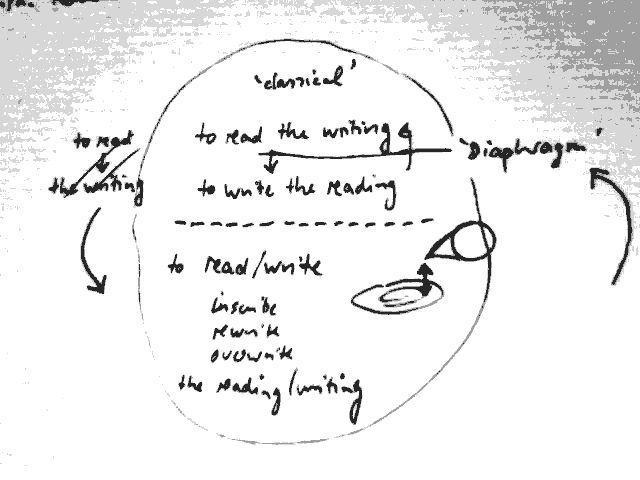 'classical'
to read the writing
to read
the writing
'Diaphragm'
to write the reading
to read/write
inscribe
rewrite
overwrite
the reading/writing